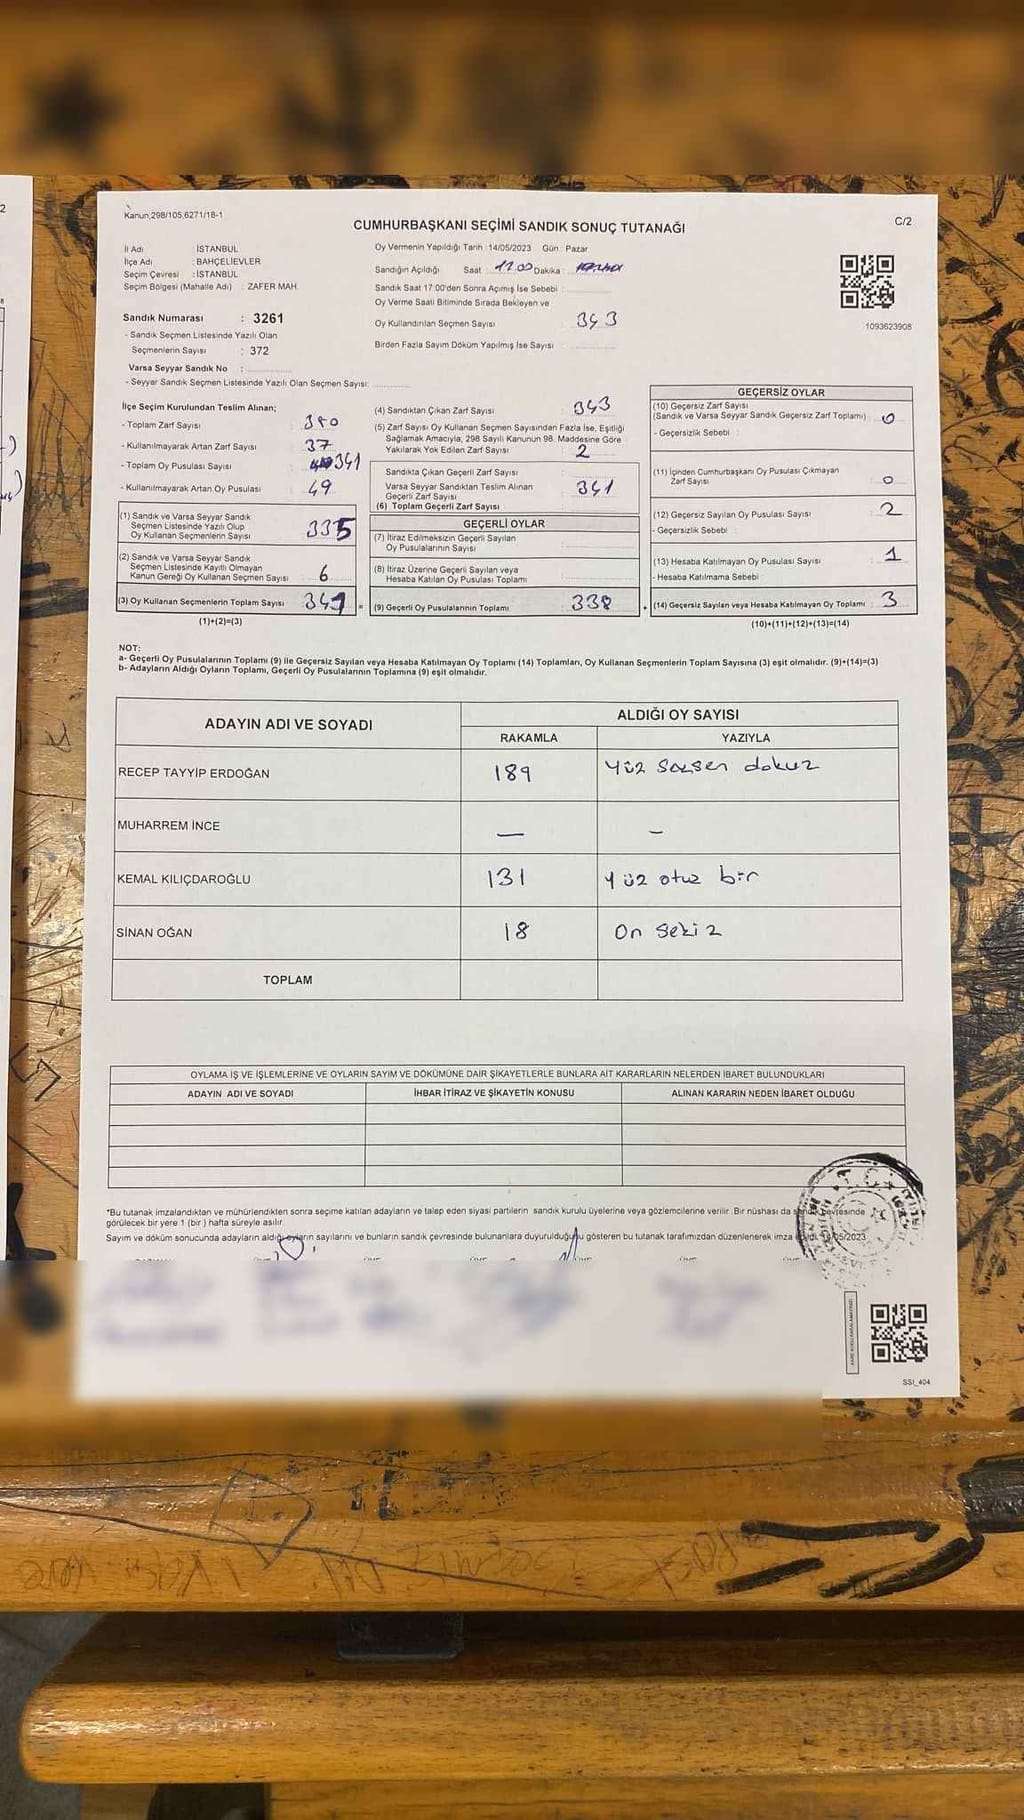 Kanun,298/105,6271/18-1
C/2
CUMHURBAŞKANI SEÇİMİ SANDIK SONUÇ TUTANAĞI
İl Adı : İSTANBUL
İlçe Adı : BAHÇELİEVLER
Seçim Çevresi : İSTANBUL
Seçim Bölgesi (Mahalle Adı) : ZAFER MAH.
Sandık Numarası : 3261
- Sandık Seçmen Listesinde Yazılı Olan
Seçmenlerin Sayısı : 372
Varsa Seyyar Sandık No :
- Seyyar Sandık Seçmen Listesinde Yazılı Olan Seçmen Sayısı:
Oy Vermenin Yapıldığı Tarih :14/05/2023 Gün : Pazar
Sandığın Açıldığı Saat Dakika :
Sandık Saat 17:00'den Sonra Açımış İse Sebebi :
Oy Verme Saati Bitiminde Sırada Bekleyen ve
Oy Kullandırılan Seçmen Sayısı : 343
Birden Fazla Sayım Döküm Yapılmış İse Sayısı :
1093623908
İlçe Seçim Kurulundan Teslim Alınan;
- Toplam Zarf Sayısı : 380
- Kullanılmayarak Artan Zarf Sayısı : 37
- Toplam Oy Pusulası Sayısı : 341
- Kullanılmayarak Artan Oy Pusulası : 49
(1) Sandık ve Varsa Seyyar Sandık
Seçmen Listesinde Yazılı Olup
Oy Kullanan Seçmenlerin Sayısı : 335
(2) Sandık ve Varsa Seyyar Sandık
Seçmen Listesinde Kayıtlı Olmayan
Kanun Gereği Oy Kullanan Seçmen Sayısı : 6
(3) Oy Kullanan Seçmenlerin Toplam Sayısı : 341 =
(1)+(2)=(3)
(4) Sandıktan Çıkan Zarf Sayısı : 343
(5) Zarf Sayısı Oy Kullanan Seçmen Sayısından Fazla İse, Eşitliği
Sağlamak Amacıyla, 298 Sayılı Kanunun 98. Maddesine Göre
Yakılarak Yok Edilen Zarf Sayısı : 2
Sandıkta Çıkan Geçerli Zarf Sayısı :
Varsa Seyyar Sandıktan Teslim Alınan
Geçerli Zarf Sayısı : 341
(6) Toplam Geçerli Zarf Sayısı :
GEÇERLİ OYLAR
(7) İtiraz Edilmeksizin Geçerli Sayılan
Oy Pusulalarının Sayısı :
(8) İtiraz Üzerine Geçerli Sayılan veya
Hesaba Katılan Oy Pusulası Toplamı :
(9) Geçerli Oy Pusulalarının Toplamı : 338
GEÇERSİZ OYLAR
(10) Geçersiz Zarf Sayısı
(Sandık ve Varsa Seyyar Sandık Geçersiz Zarf Toplamı) : 0
- Geçersizlik Sebebi :
(11) İçinden Cumhurbaşkanı Oy Pusulası Çıkmayan
Zarf Sayısı : 0
(12) Geçersiz Sayılan Oy Pusulası Sayısı : 2
- Geçersizlik Sebebi :
(13) Hesaba Katılmayan Oy Pusulası Sayısı : 1
- Hesaba Katılmama Sebebi
(14) Geçersiz Sayılan veya Hesaba Katılmayan Oy Toplamı : 3
(10)+(11)+(12)+(13)=(14)
NOT:
a- Geçerli Oy Pusulalarının Toplamı (9) ile Geçersiz Sayılan veya Hesaba Katılmayan Oy Toplamı (14) Toplamları, Oy Kullanan Seçmenlerin Toplam Sayısına (3) eşit olmalıdır. (9)+(14)=(3)
b- Adayların Aldığı Oyların Toplamı, Geçerli Oy Pusulalarının Toplamına (9) eşit olmalıdır.
ADAYIN ADI VE SOYADI
ALDIĞI OY SAYISI
RAKAMLA YAZIYLA
RECEP TAYYİP ERDOĞAN 189 Yüz seksen dokuz
MUHARREM İNCE — -
KEMAL KILIÇDAROĞLU 131 Yüz otuz bir
SİNAN OĞAN 18 On sekiz
TOPLAM
OYLAMA İŞ VE İŞLEMLERİNE VE OYLARIN SAYIM VE DÖKÜMÜNE DAİR ŞİKAYETLERLE BUNLARA AİT KARARLARIN NELERDEN İBARET BULUNDUKLARI
ADAYIN ADI VE SOYADI İHBAR İTİRAZ VE ŞİKAYETİN KONUSU ALINAN KARARIN NEDEN İBARET OLDUĞU
*Bu tutanak imzalandıktan ve mühürlendikten sonra seçime katılan adayların ve talep eden siyasi partilerin sandık kurulu üyelerine veya gözlemcilerine verilir. Bir nüshası da sandık çevresinde
görülecek bir yere 1 (bir ) hafta süreyle asılır.
Sayım ve döküm sonucunda adayların aldığı oyların sayılarını ve bunların sandık çevresinde bulunanlara duyurulduğunu gösteren bu tutanak tarafımızdan düzenlenerek imza 14/05/2023
T.C.
SSI_404